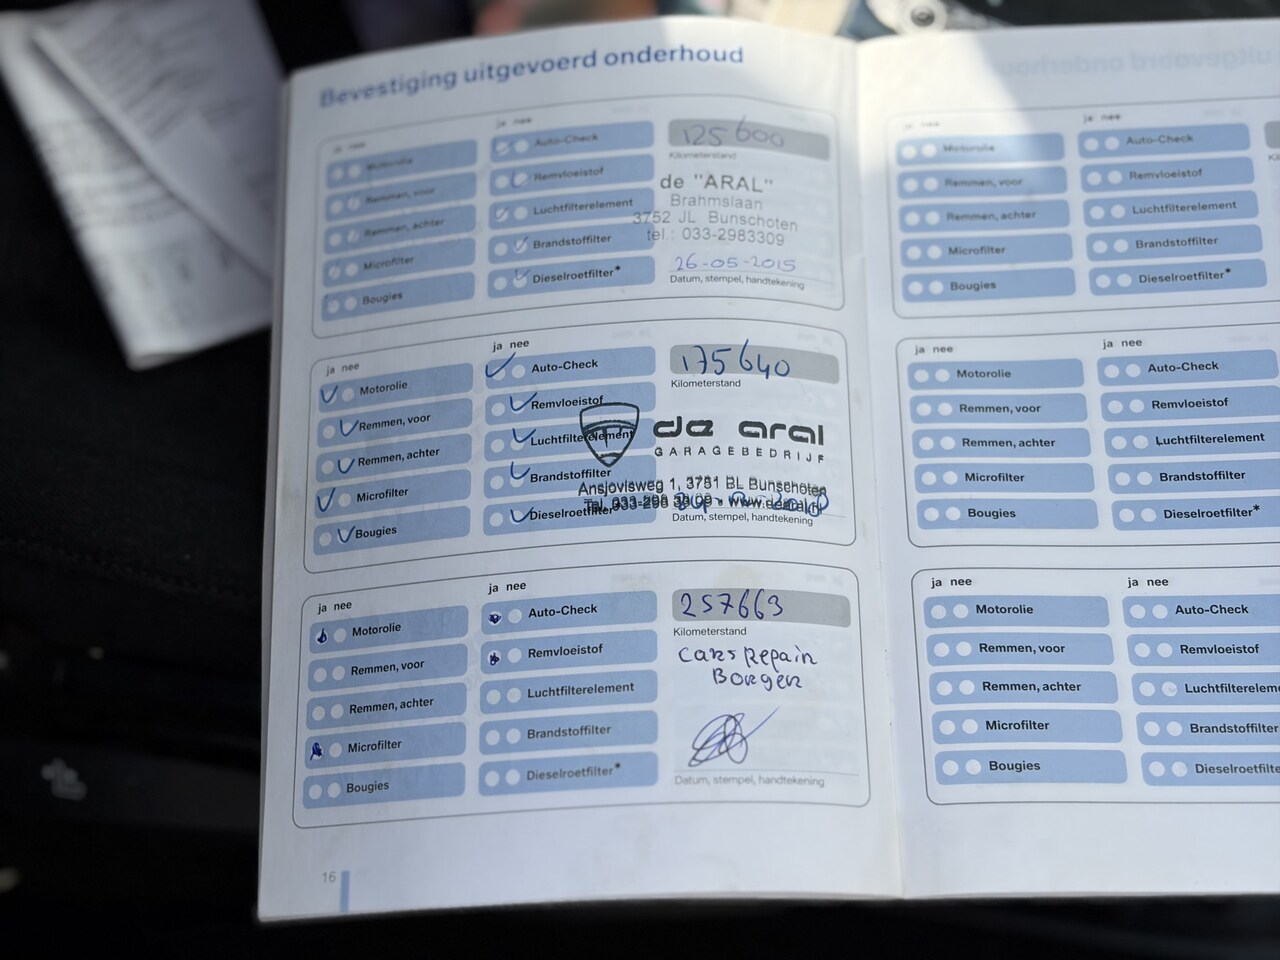 Bevestiging uitgevoerd onderhoud
ja nee
Motorolie
Remmen, voor
Remmen, achter
Microfilter
Bougies
ja nee
Auto-Check
Remvloeistof
Luchtfilterelement
Brandstoffilter
Dieselroetfilter*
125600
Kilometerstand
de "ARAL"
Brahmslaan
3752 JL Bunschoten
tel.: 033-2983309
26-05-2015
Datum, stempel, handtekening
ja nee
Motorolie
Remmen, voor
Remmen, achter
Microfilter
Bougies
ja nee
Auto-Check
Remvloeistof
Luchtfilterelement
Brandstoffilter
Dieselroetfilter*
175640
Kilometerstand
de aral
GARAGEBEDRIJF
Ansjovisweg 1, 3751 BL Bunschoten
Tel. 033-298 33 09 - www.dearal.nl
Datum, stempel, handtekening
ja nee
Motorolie
Remmen, voor
Remmen, achter
Microfilter
Bougies
ja nee
Auto-Check
Remvloeistof
Luchtfilterelement
Brandstoffilter
Dieselroetfilter*
257663
Kilometerstand
Carsrepair
Borger
Datum, stempel, handtekening
16
ja nee
Motorolie
Remmen, voor
Remmen, achter
Microfilter
Bougies
ja nee
Auto-Check
Remvloeistof
Luchtfilterelement
Brandstoffilter
Dieselroetfilter*
ja nee
Motorolie
Remmen, voor
Remmen, achter
Microfilter
Bougies
ja nee
Auto-Check
Remvloeistof
Luchtfilterelement
Brandstoffilter
Dieselroetfilter*
ja nee
Motorolie
Remmen, voor
Remmen, achter
Microfilter
Bougies
ja nee
Auto-Check
Remvloeistof
Luchtfiltereleme
Brandstoffilter
Dieselroetfilte